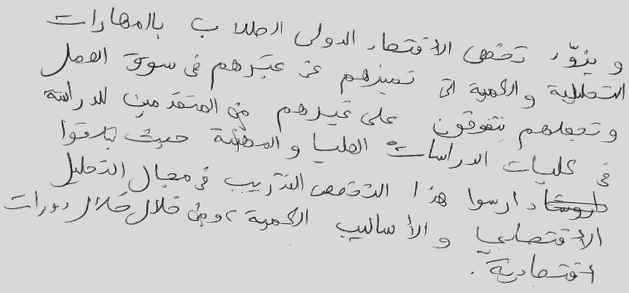 ويزوّد تخصص الاقتصاد الدولي الطلاب بالمهارات
التحليلية والكمية التي تميزهم عن غيرهم في سوق العمل
وتجعلهم يتفوقون على غيرهم من المتقدمين للدراسة
في كليات الدراسات العليا والمهنية حيث يتلقوا
دارسوا هذا التخصص التدريب في مجال التحليل
الاقتصادي والأساليب الكمية، ومن خلال خلال دورات
اقتصادية.